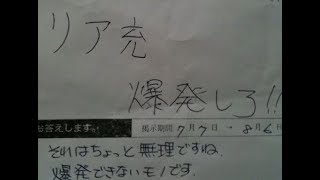 リア充
爆発しろ!!
お答えします。
掲示期間 7月7日 → 8月6日
それはちょっと無理ですね。
爆発できないモノです。